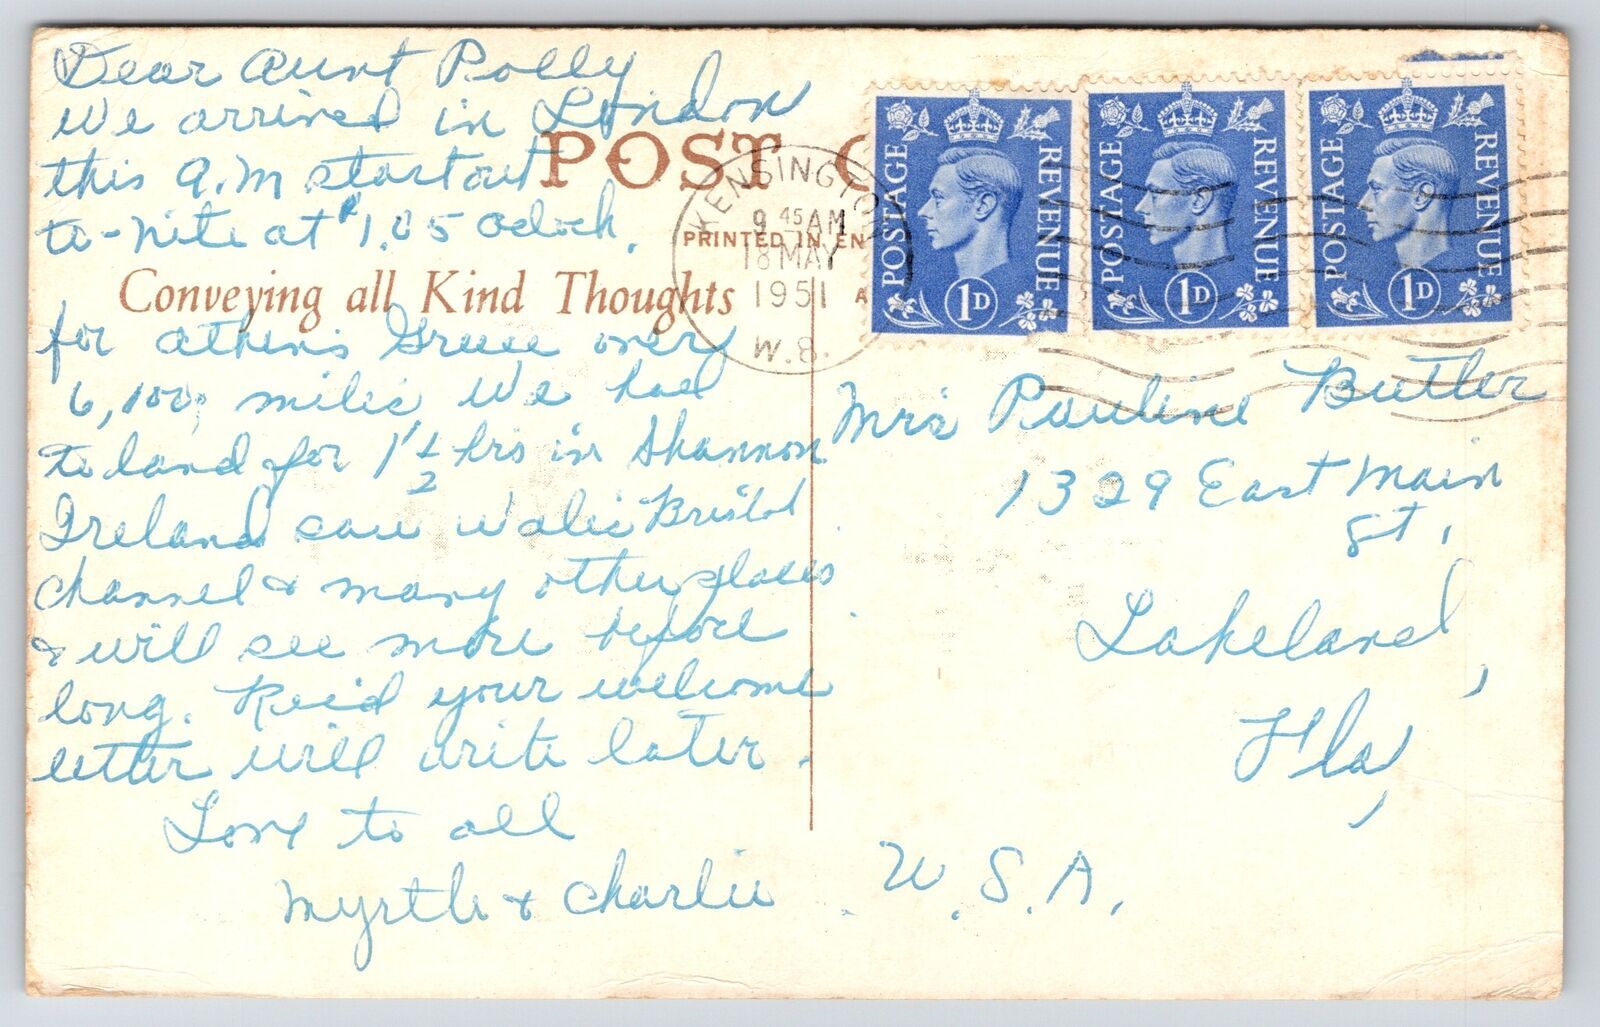 Dear Aunt Polly
We arrived in London
this A.M start out
to-nite at 1.05 oclock.
for Athens Greece over
6,100 miles We had
to land for 1 1/2 hrs in Shannon
Ireland saw Wales Bristol
channel & many other places
& will see more before
long. Rec'd your welcome
letter will write later.
Love to all
Myrtle & Charlie
POST C
PRINTED IN EN
Conveying all Kind Thoughts
A
KENSINGTON
9 45 AM
18 MAY
1951
W.8.
POSTAGE REVENUE
1D
POSTAGE REVENUE
1D
POSTAGE REVENUE
1D
Mrs Pauline Butler
1329 East Main
St,
Lakeland,
Fla,
U.S.A.